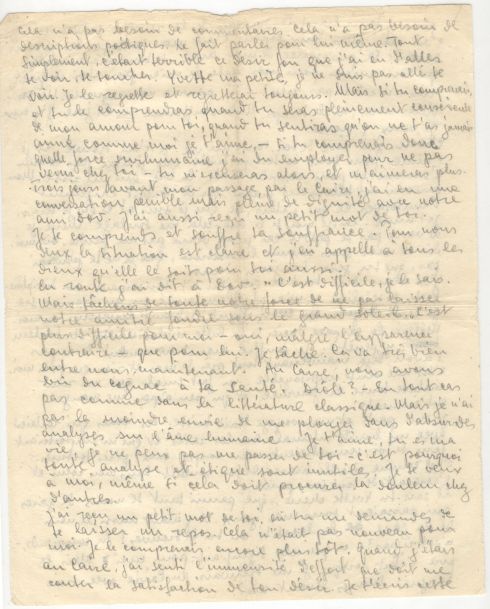 Cela n'a pas besoin de commentaires cela n'a pas besoin de
descriptions poétiques. Le fait parle pour lui même. Tout
simplement, c'était terrible ce désir fou que j'ai eu d'aller
te voir, te toucher. Yvette ma petite, je ne suis pas allé te
voir. Je le regrette et regretterai toujours. Mais si tu comprenais,
et tu le comprendras quand tu seras pleinement consciente
de mon amour pour toi, quand tu sentiras qu'on ne t'a jamais
aimé comme moi je t'aime, - si tu comprenais donc
quelle force surhumaine j'ai du employer pour ne pas
venir chez toi - tu m'excuseras alors, et m'aimeras plus.
Trois jours avant mon passage par le Caire, j'ai eu une
conversation pénible mais pleine de dignité avec notre
ami Dov. J'ai aussi reçu un petit mot de toi.
Je te comprends et souffre ta souffrance. Pour nous
deux la situation est claire et j'en appelle à tous les
dieux qu'elle le soit pour toi aussi.
En route j'ai dit à Dov. "C'est difficile, je le sais.
Mais tâchons de toute notre force de ne pas laisser
notre amitié fondre sous le grand soleil. C'est
plus difficile pour moi - oui, malgré l'apparence
contraire - que pour lui. Je tâche. Ça va très bien
entre nous maintenant. Au Caire, nous avons
bu du cognac à ta santé. Drôle? - En tout cas
pas comme dans la littérature classique. Mais je n'ai
pas la moindre envie de me plonger dans d'absurdes
analyses sur l'âme humaine. Je t'aime, tu es ma
vie, je ne peux pas me passer de toi - c'est pourquoi
toute analyse et étique sont inutiles. Je te veux
à moi, même si cela doit procurer la douleur chez
d'autres.
J'ai reçu un petit mot de toi, où tu me demandes de
te laisser un repos. Cela n'était pas nouveau pour
moi. Je le comprenais encore plus tôt. Quand j'étais
au Caire, j'ai senti l'immensité d'effort que doit me
couter la satisfaction de ton désir. Je t'écris cette